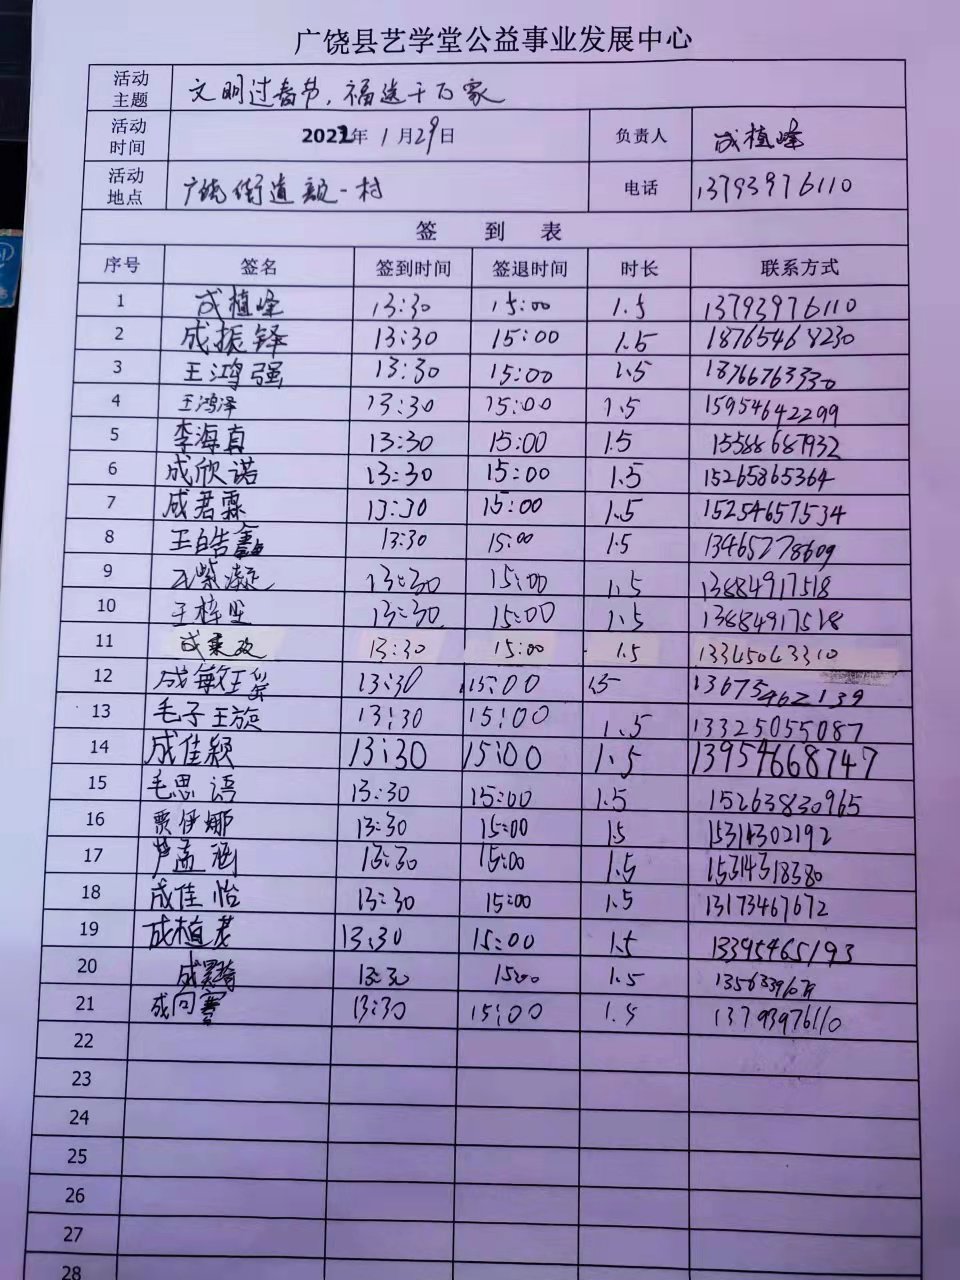 广饶县艺学堂公益事业发展中心
活动主题 文明过春节，福送千万家
活动时间 2022年 1月29日 负责人 成植峰
活动地点 广饶街道颜一村 电话 13793976110
签 到 表
序号 签名 签到时间 签退时间 时长 联系方式
1 成植峰 13:30 15:00 1.5 13793976110
2 成振铎 13:30 15:00 1.5 18765468230
3 王鸿强 13:30 15:00 1.5 18766763330
4 王鸿泽 13:30 15:00 1.5 15954642299
5 李海真 13:30 15:00 1.5 15588687932
6 成欣诺 13:30 15:00 1.5 15265865364
7 成君霖 13:30 15:00 1.5 15254657534
8 王皓鑫 13:30 15:00 1.5 13465278609
9 王紫凝 13:30 15:00 1.5 13884917518
10 王梓坚 13:30 15:00 1.5 13884917518
11 成 13:30 15:00 1.5 13345043310
12 成敏 13:30 15:00 1.5 13675462139
13 毛子琁 13:30 15:00 1.5 13325055087
14 成佳颖 13:30 15:00 1.5 13954668747
15 毛思语 13:30 15:00 1.5 15263830965
16 贾伊娜 13:30 15:00 1.5 15314302192
17 芦孟涵 13:30 15:00 1.5 15314318380
18 成佳怡 13:30 15:00 1.5 13173467672
19 成植茗 13:30 15:00 1.5 13395465193
20 成 13:30 15:00 1.5
21 成向謇 13:30 15:00 1.5 13793976110
22
23
24
25
26
27
28